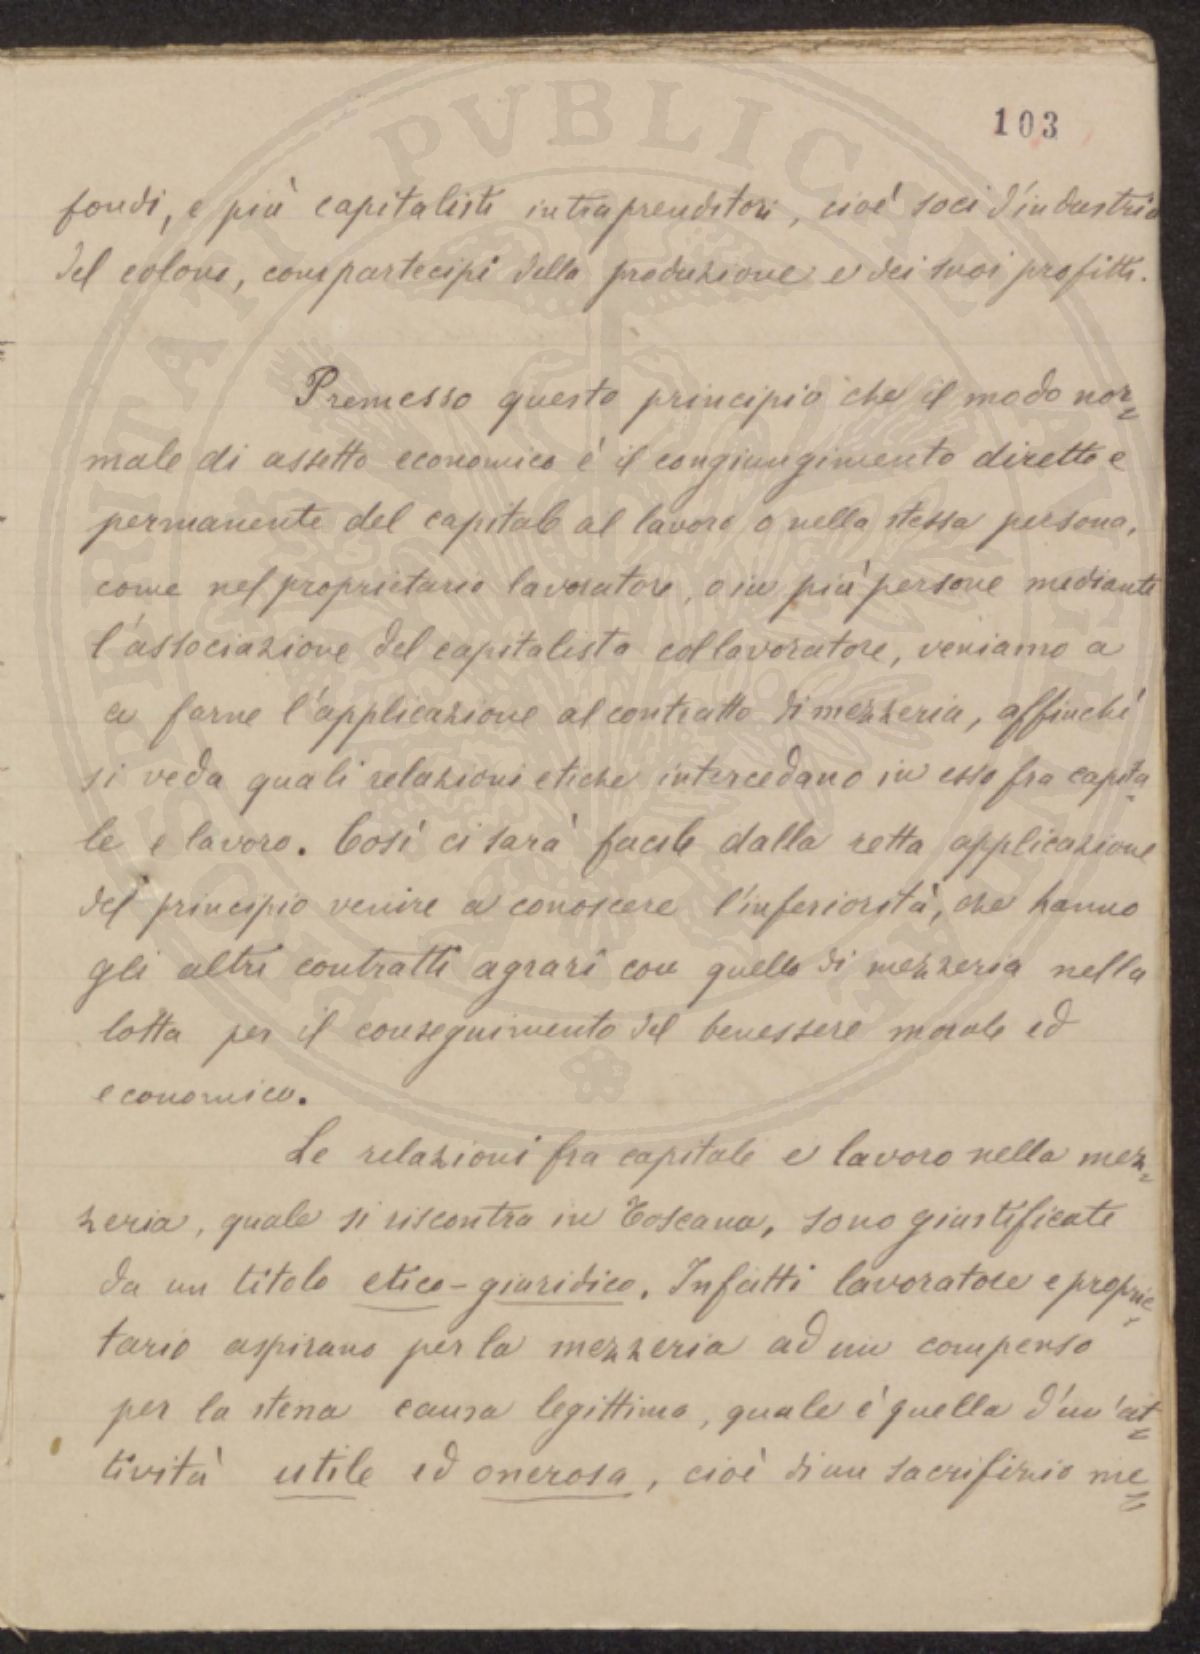 103
fondi, e più capitalisti intraprenditori, cioè soci d'industria
del colono, compartecipi della produzione e dei suoi profitti.
Premesso questo principio che il modo nor=
male di assetto economico è il congiungimento diretto e
permanente del capitale al lavoro o nella stessa persona,
come nel proprietario lavoratore, o in più persone mediante
l'associazione del capitalista col lavoratore, veniamo a
a farne l'applicazione al contratto di mezzeria, affinchè
si veda quali relazioni etiche intercedano in esso fra capita=
le e lavoro. Così ci sarà facile dalla retta applicazione
del principio venire a conoscere l'inferiorità, che hanno
gli altri contratti agrari con quello di mezzeria nella
lotta per il conseguimento del benessere morale ed
economico.
Le relazioni fra capitale e lavoro nella mez=
zeria, quale si riscontra in Toscana, sono giustificate
da un titolo etico-giuridico. Infatti lavoratore e proprie=
tario aspirano per la mezzeria ad un compenso
per la stessa causa legittima, quale è quella d'un'at=
tività utile ed onerosa, cioè di un sacrifizio me=
PROSPERITATI PVBLICAE AVGENDAE